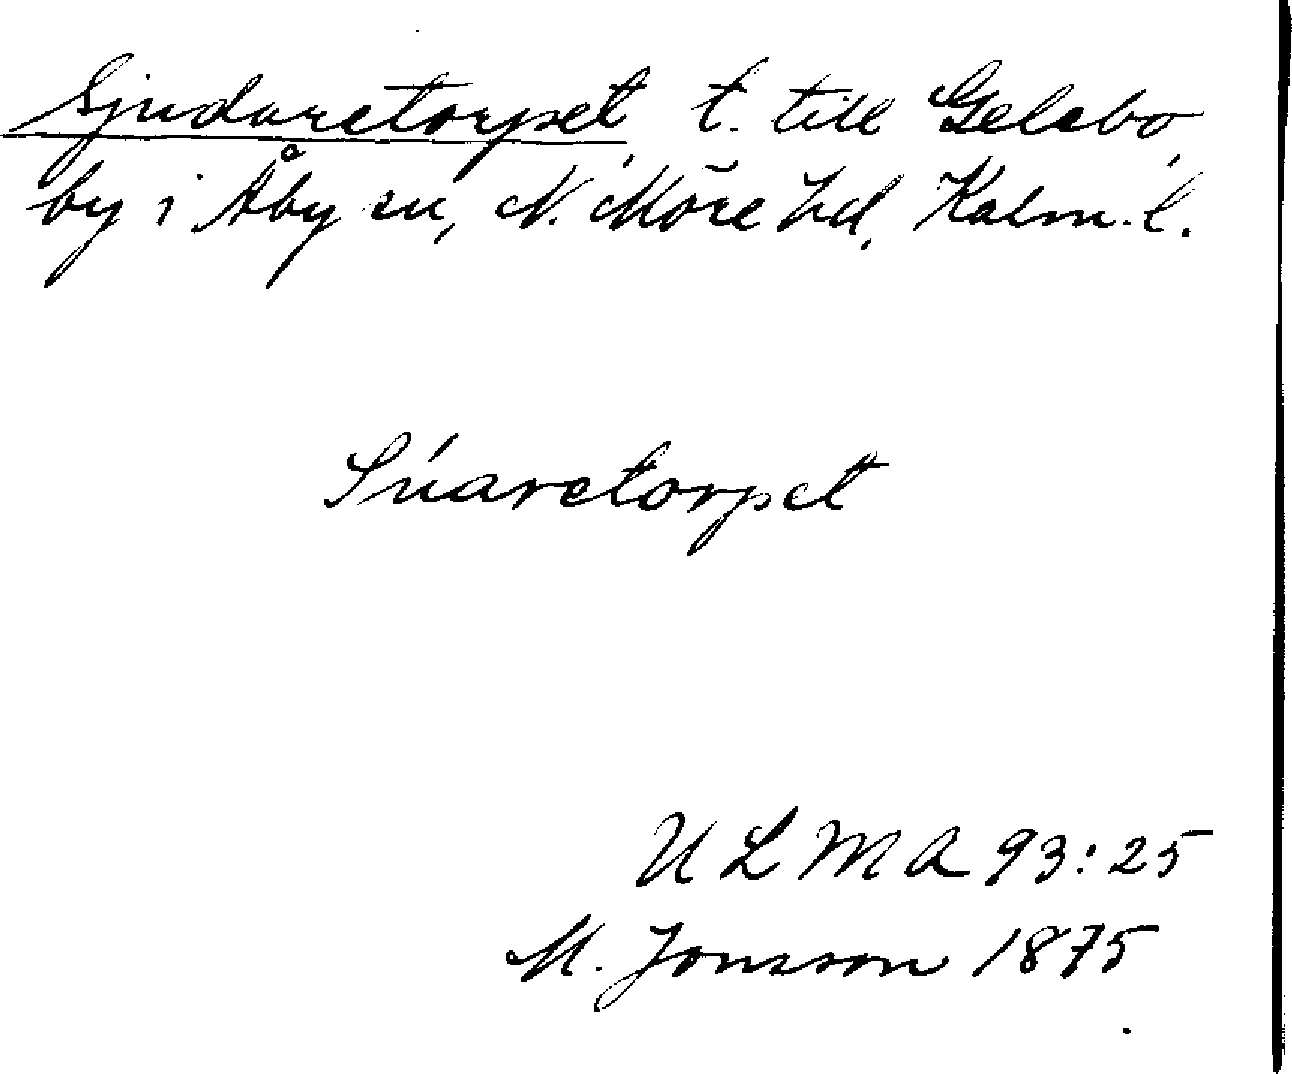 Sjudaretorpet t. till Gelebo,
by i Åby sn, N. Möre hd, Kalm. l.
Súaretorpet
ULMA 93:25
M. Jonsson 1875